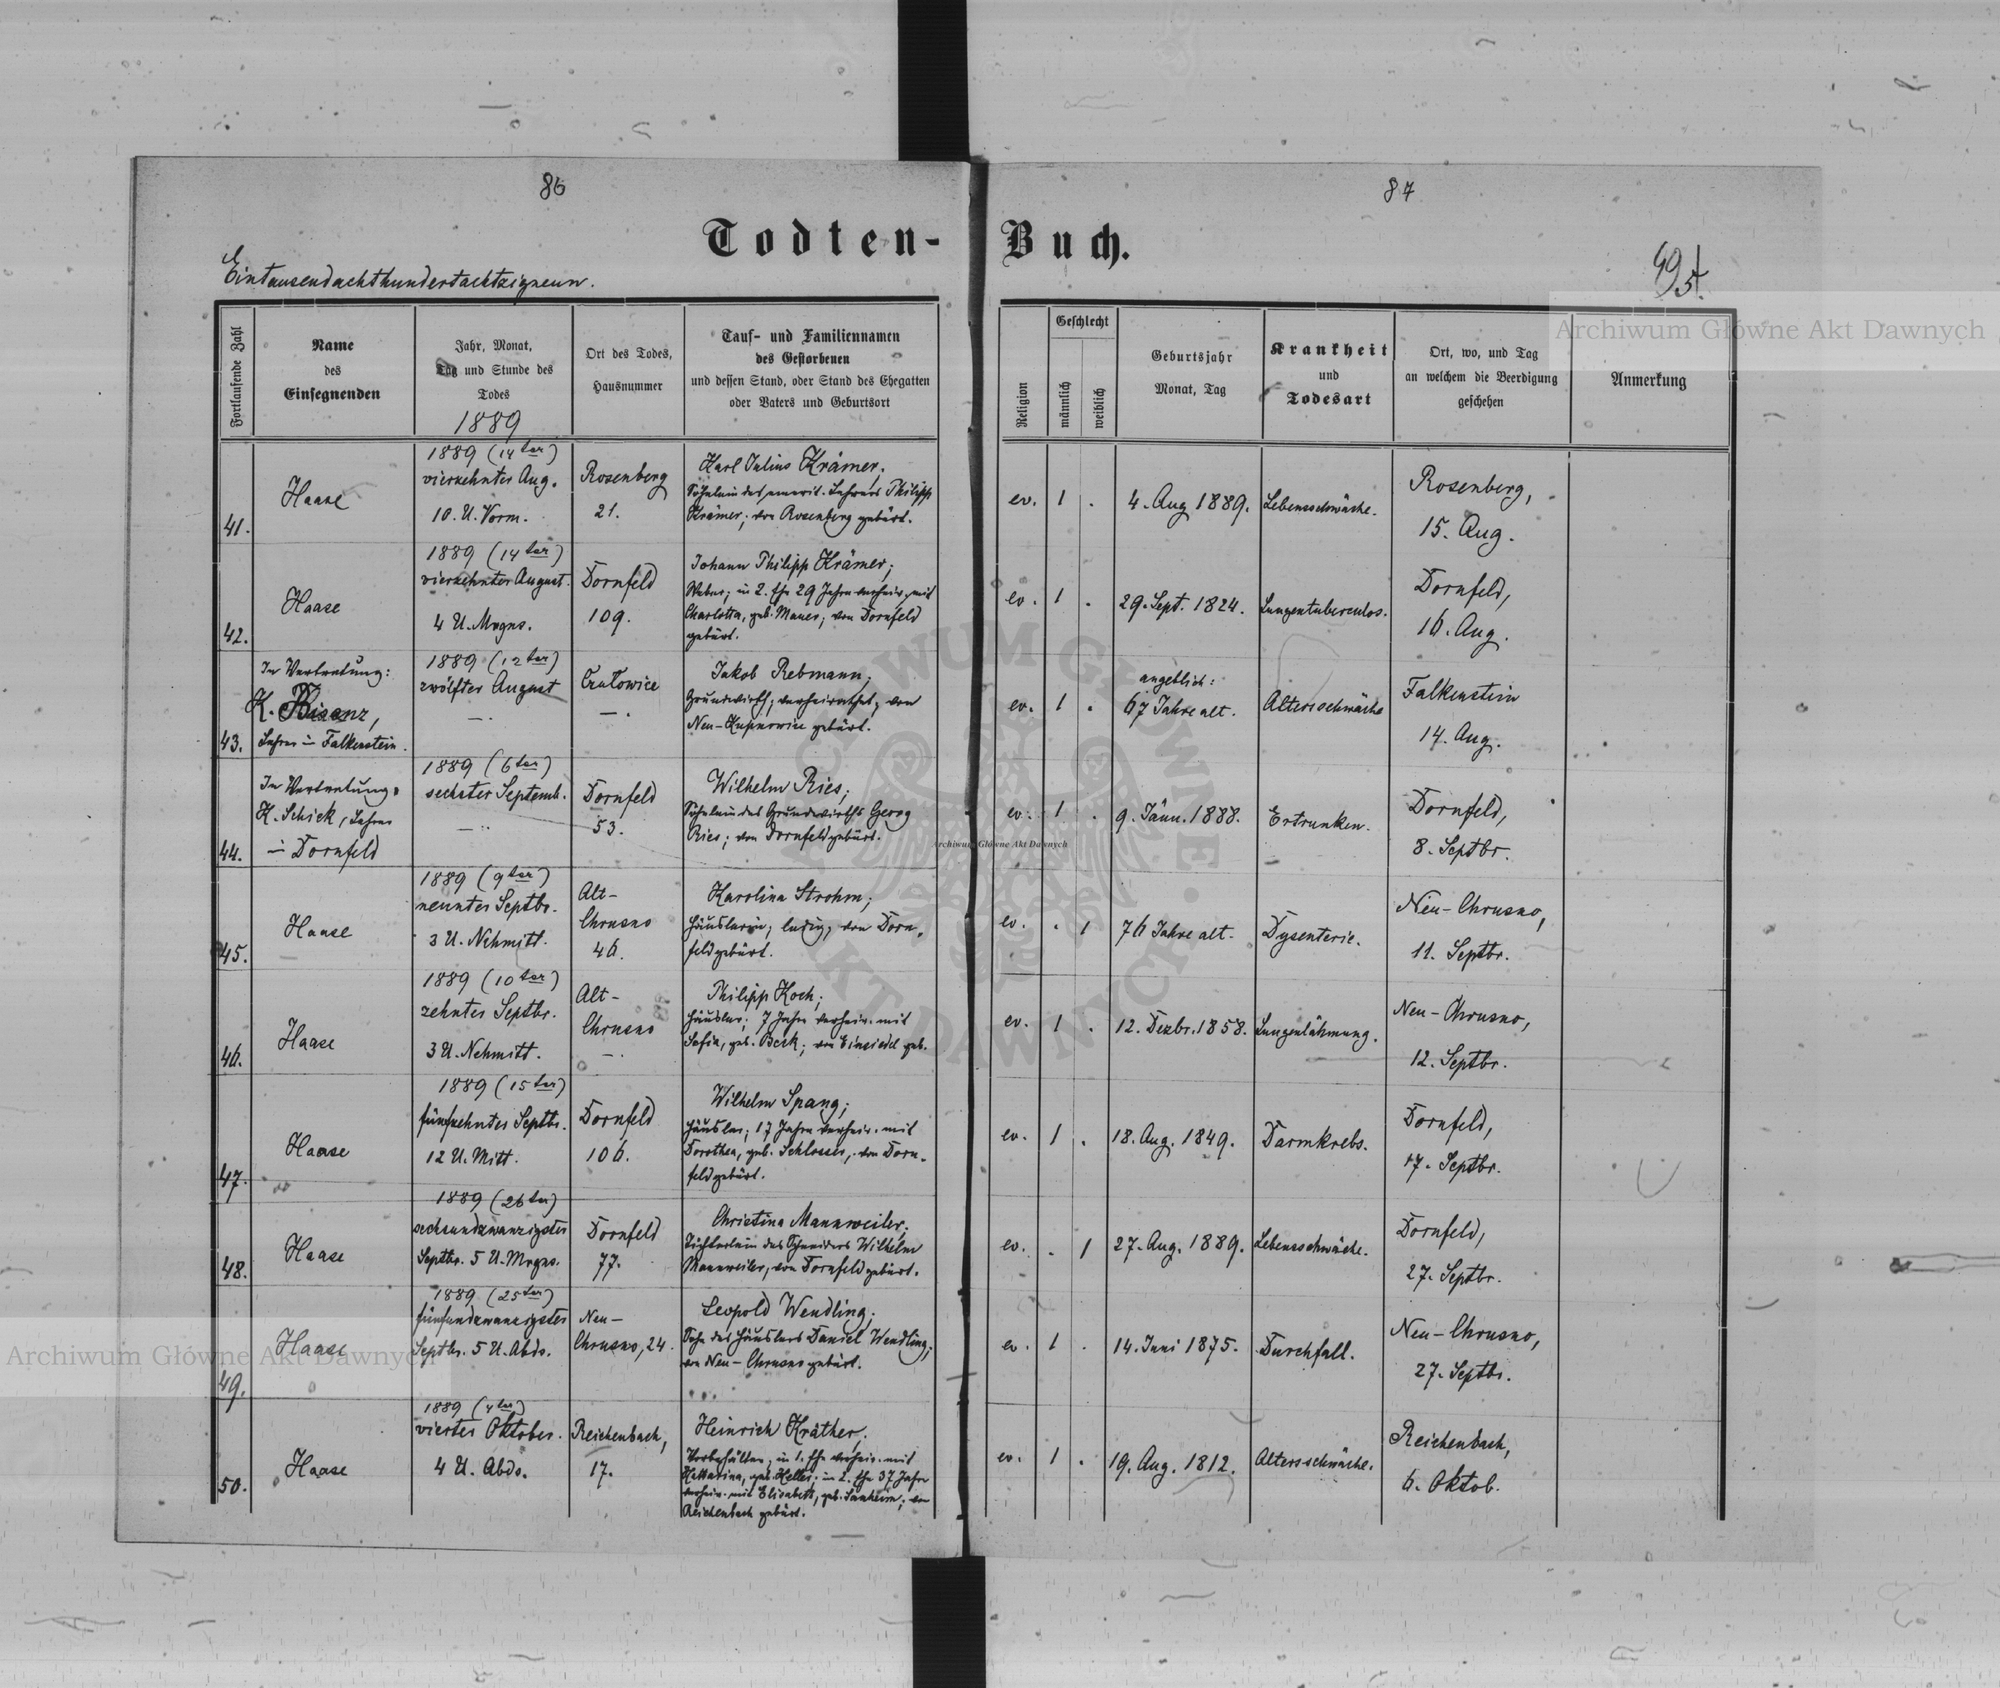 86
87
Todten-Buch.
Eintausendachthundertachtzigneun.
Archiwum Główne Akt Dawnych
Fortlaufende Zahl
Name
des
Einsegnenden
Jahr, Monat,
Tag und Stunde des
Todes
1889
Ort des Todes,
Hausnummer
Tauf- und Familiennamen
des Gestorbenen
und dessen Stand, oder Stand des Ehegatten
oder Vaters und Geburtsort
Religion
Geschlecht
männlich
weiblich
Geburtsjahr
Monat, Tag
Krankheit
und
Todesart
Ort, wo, und Tag
an welchem die Beerdigung
geschehen
Anmerkung
41.
Haase
1889 (14ter)
vierzehnter Aug.
10. U. Vorm.
Rosenberg
21.
Karl Julius Krämer,
Söhnlein des emerit. Lehrers Philipp
Krämer; von Rosenberg gebürt.
ev. 1 .
4. Aug 1889.
Lebensschwäche.
Rosenberg,
15. Aug.
42.
Haase
1889 (14ter)
vierzehnter August.
4 U. Mrgns.
Dornfeld
109.
Johann Philipp Krämer;
Weber; in 2. Ehe 29 Jahre verheir. mit
Charlotta, geb. Mauer; von Dornfeld
gebürt.
ev. 1 .
29. Sept. 1824.
Lungentuberculos.
Dornfeld,
16. Aug.
43.
In Vertretung:
K. Bisanz,
Lehrer in Falkenstein.
1889 (12ter)
zwölfter August
— .
— .
Jakob Rebmann;
Grundwirth, verheirathet, von
Neu- gebürt.
ev. 1 .
angeblich:
67 Jahre alt.
Altersschwäche
Falkenstein
14. Aug.
44.
In Vertretung:
H. Schick, Lehrer
in Dornfeld
1889 (6ter)
sechster Septemb.
— .
Dornfeld
53.
Wilhelm Ries;
Söhnlein des Grundwirths Georg
Ries; von Dornfeld gebürt.
ev. 1 .
9. Jänn. 1888.
Ertrunken.
Dornfeld,
8. Septbr.
Archiwum Główne Akt Dawnych
45.
Haase
1889 (9ter)
neunter Septbr.
3 U. Nchmitt.
Alt-
Chrusno
46.
Karolina Strohm;
Häuslerin, ledig, von Dorn-
feld gebürt.
ev. . 1
76 Jahre alt.
Dysenterie.
Neu-Chrusno,
11. Septbr.
46.
Haase
1889 (10ter)
zehnter Septbr.
3 U. Nchmitt.
Alt-
Chrusno
— .
Philipp Koch;
Häusler; 7 Jahre verheir. mit
Sofia, geb. Berk; von Einsiedel geb.
ev. 1 .
12. Dezbr. 1858.
Lungenlähmung.
Neu-Chrusno,
12. Septbr.
47.
Haase
1889 (15ter)
fünfzehnter Septbr.
12 U. Mitt.
Dornfeld
106.
Wilhelm Spang;
Häusler; 17 Jahre verheir. mit
Dorothea, geb. Schlosser, von Dorn-
feld gebürt.
ev. 1 .
18. Aug. 1849.
Darmkrebs.
Dornfeld,
17. Septbr.
48.
Haase
1889 (26ter)
sechsundzwanzigster
Septbr. 5 U. Mrgns.
Dornfeld
77.
Christina Mannweiler;
Töchterlein des Schneiders Wilhelm
Mannweiler, von Dornfeld gebürt.
ev. . 1
27. Aug. 1889.
Lebensschwäche.
Dornfeld,
27. Septbr.
49.
Haase
1889 (25ter)
fünfundzwanzigster
Septbr. 5 U. Abds.
Neu-
Chrusno, 24.
Leopold Wendling;
Sohn des Häuslers Daniel Wendling;
von Neu-Chrusno gebürt.
ev. 1 .
14. Juni 1875.
Durchfall.
Neu-Chrusno,
27. Septbr.
Archiwum Główne Akt Dawnych
50.
Haase
1889 (4ter)
vierter Oktober.
4 U. Abds.
Reichenbach,
17.
Heinrich Kräther,
Vorbehälter; in 1. Ehe verheir. mit
Katharina, geb. Heller; in 2. Ehe 37 Jahre
verheir. mit Elisabeth, geb. ; von
Reichenbach gebürt.
ev. 1 .
19. Aug. 1812.
Altersschwäche.
Reichenbach,
6. Oktob.